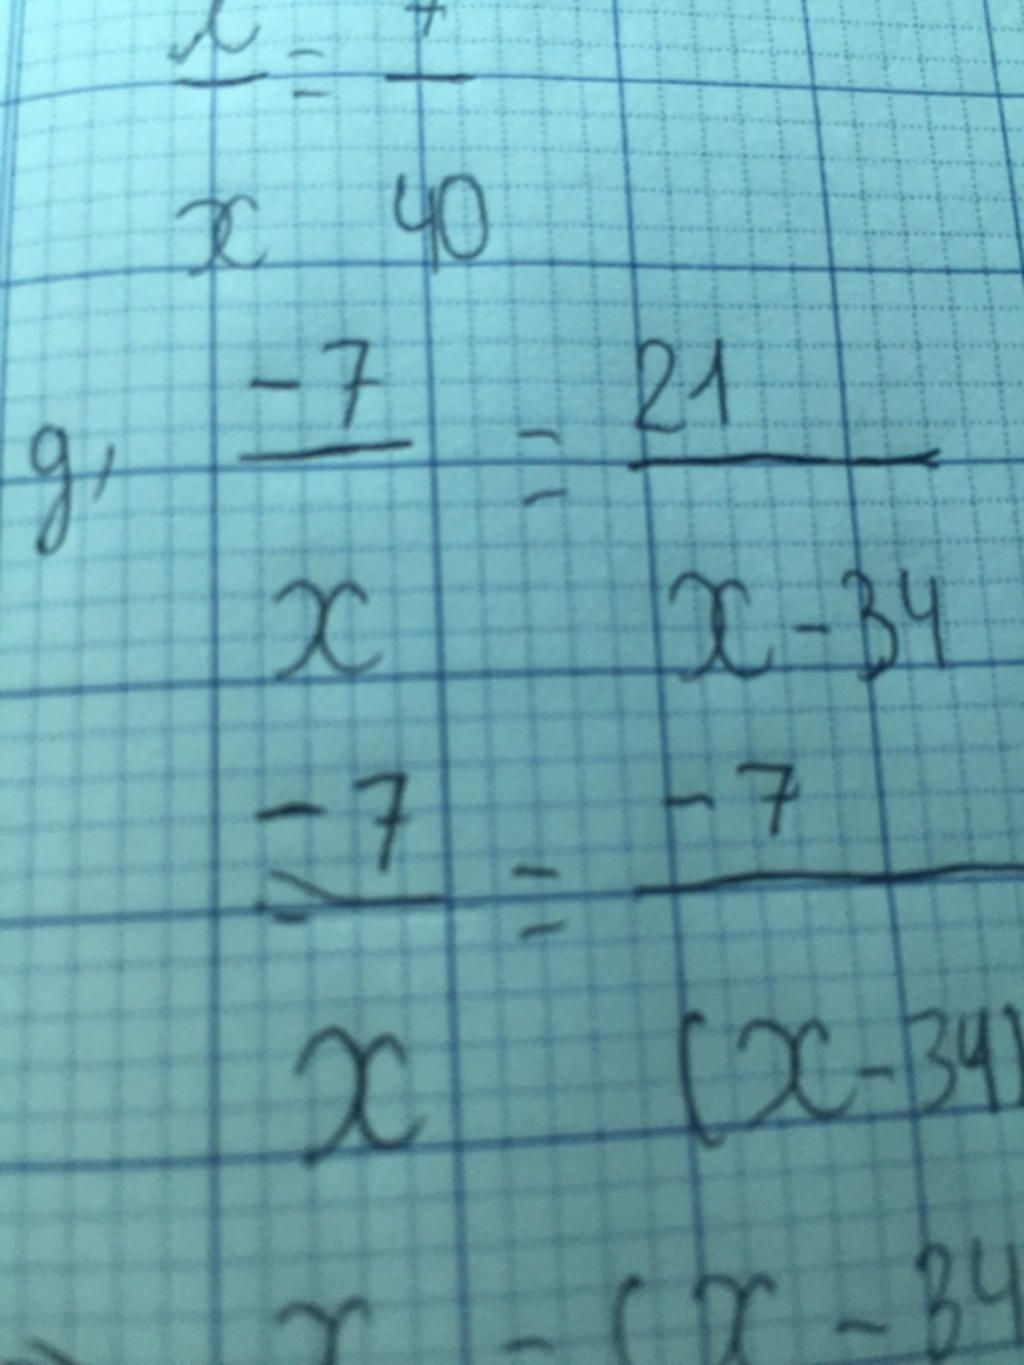 x 40
g, -7 = 21
x x-34
-7 = -7
x (x-34)
x = (x-34